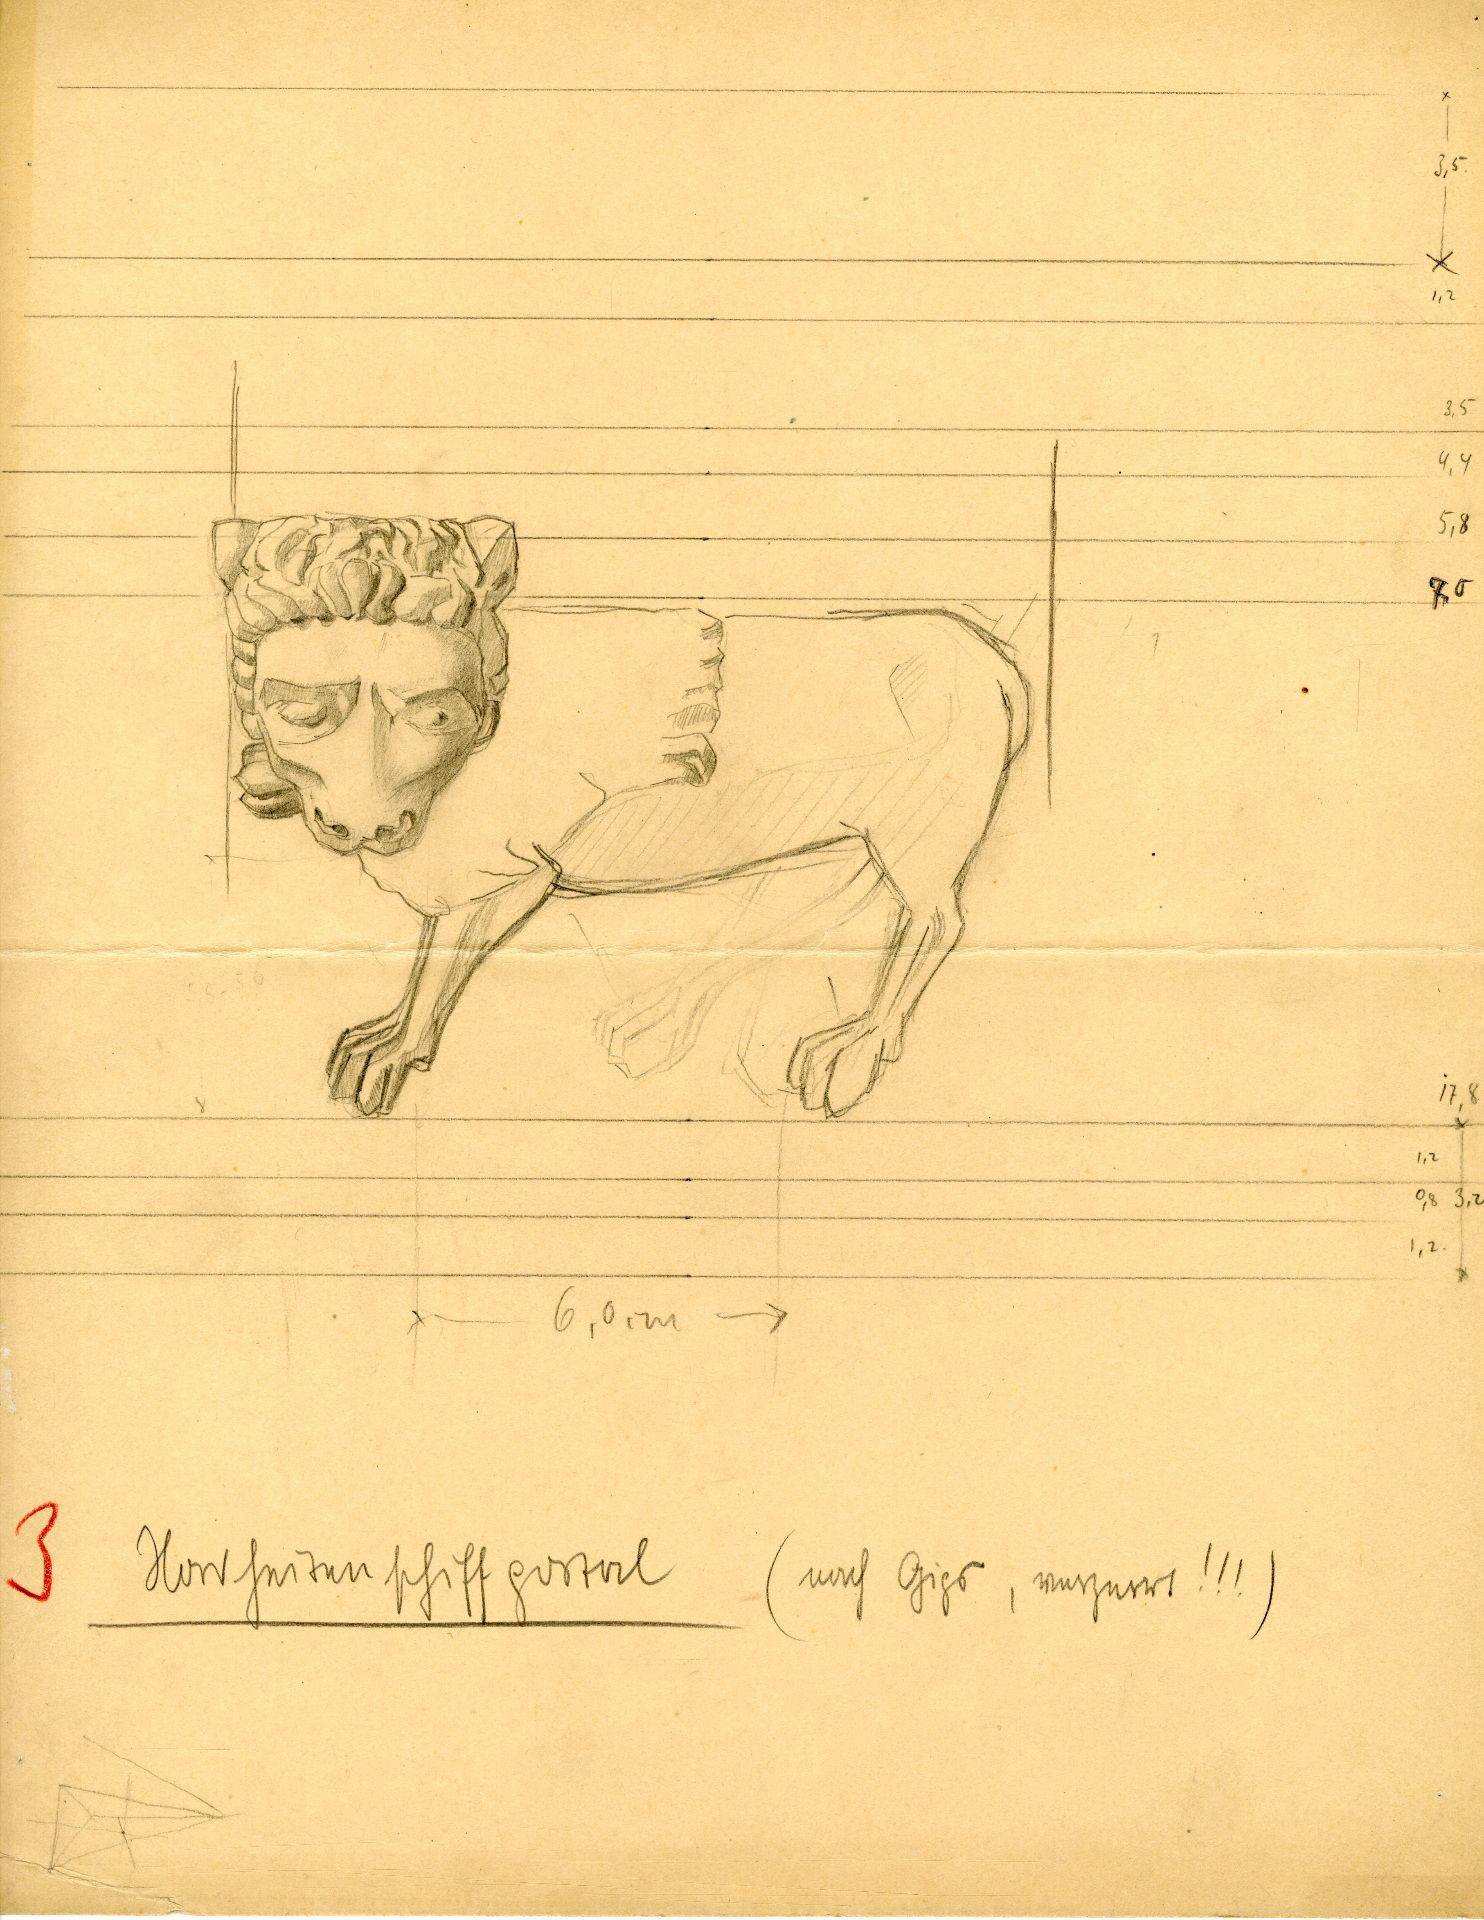 3,5.
1,2
3,5
4,4
5,8
7,0
17,8
1,2
0,8 3,2
1,2.
6,0 cm
3 Nordseitenschiffportal (nach Gips, verzerrt!!!)